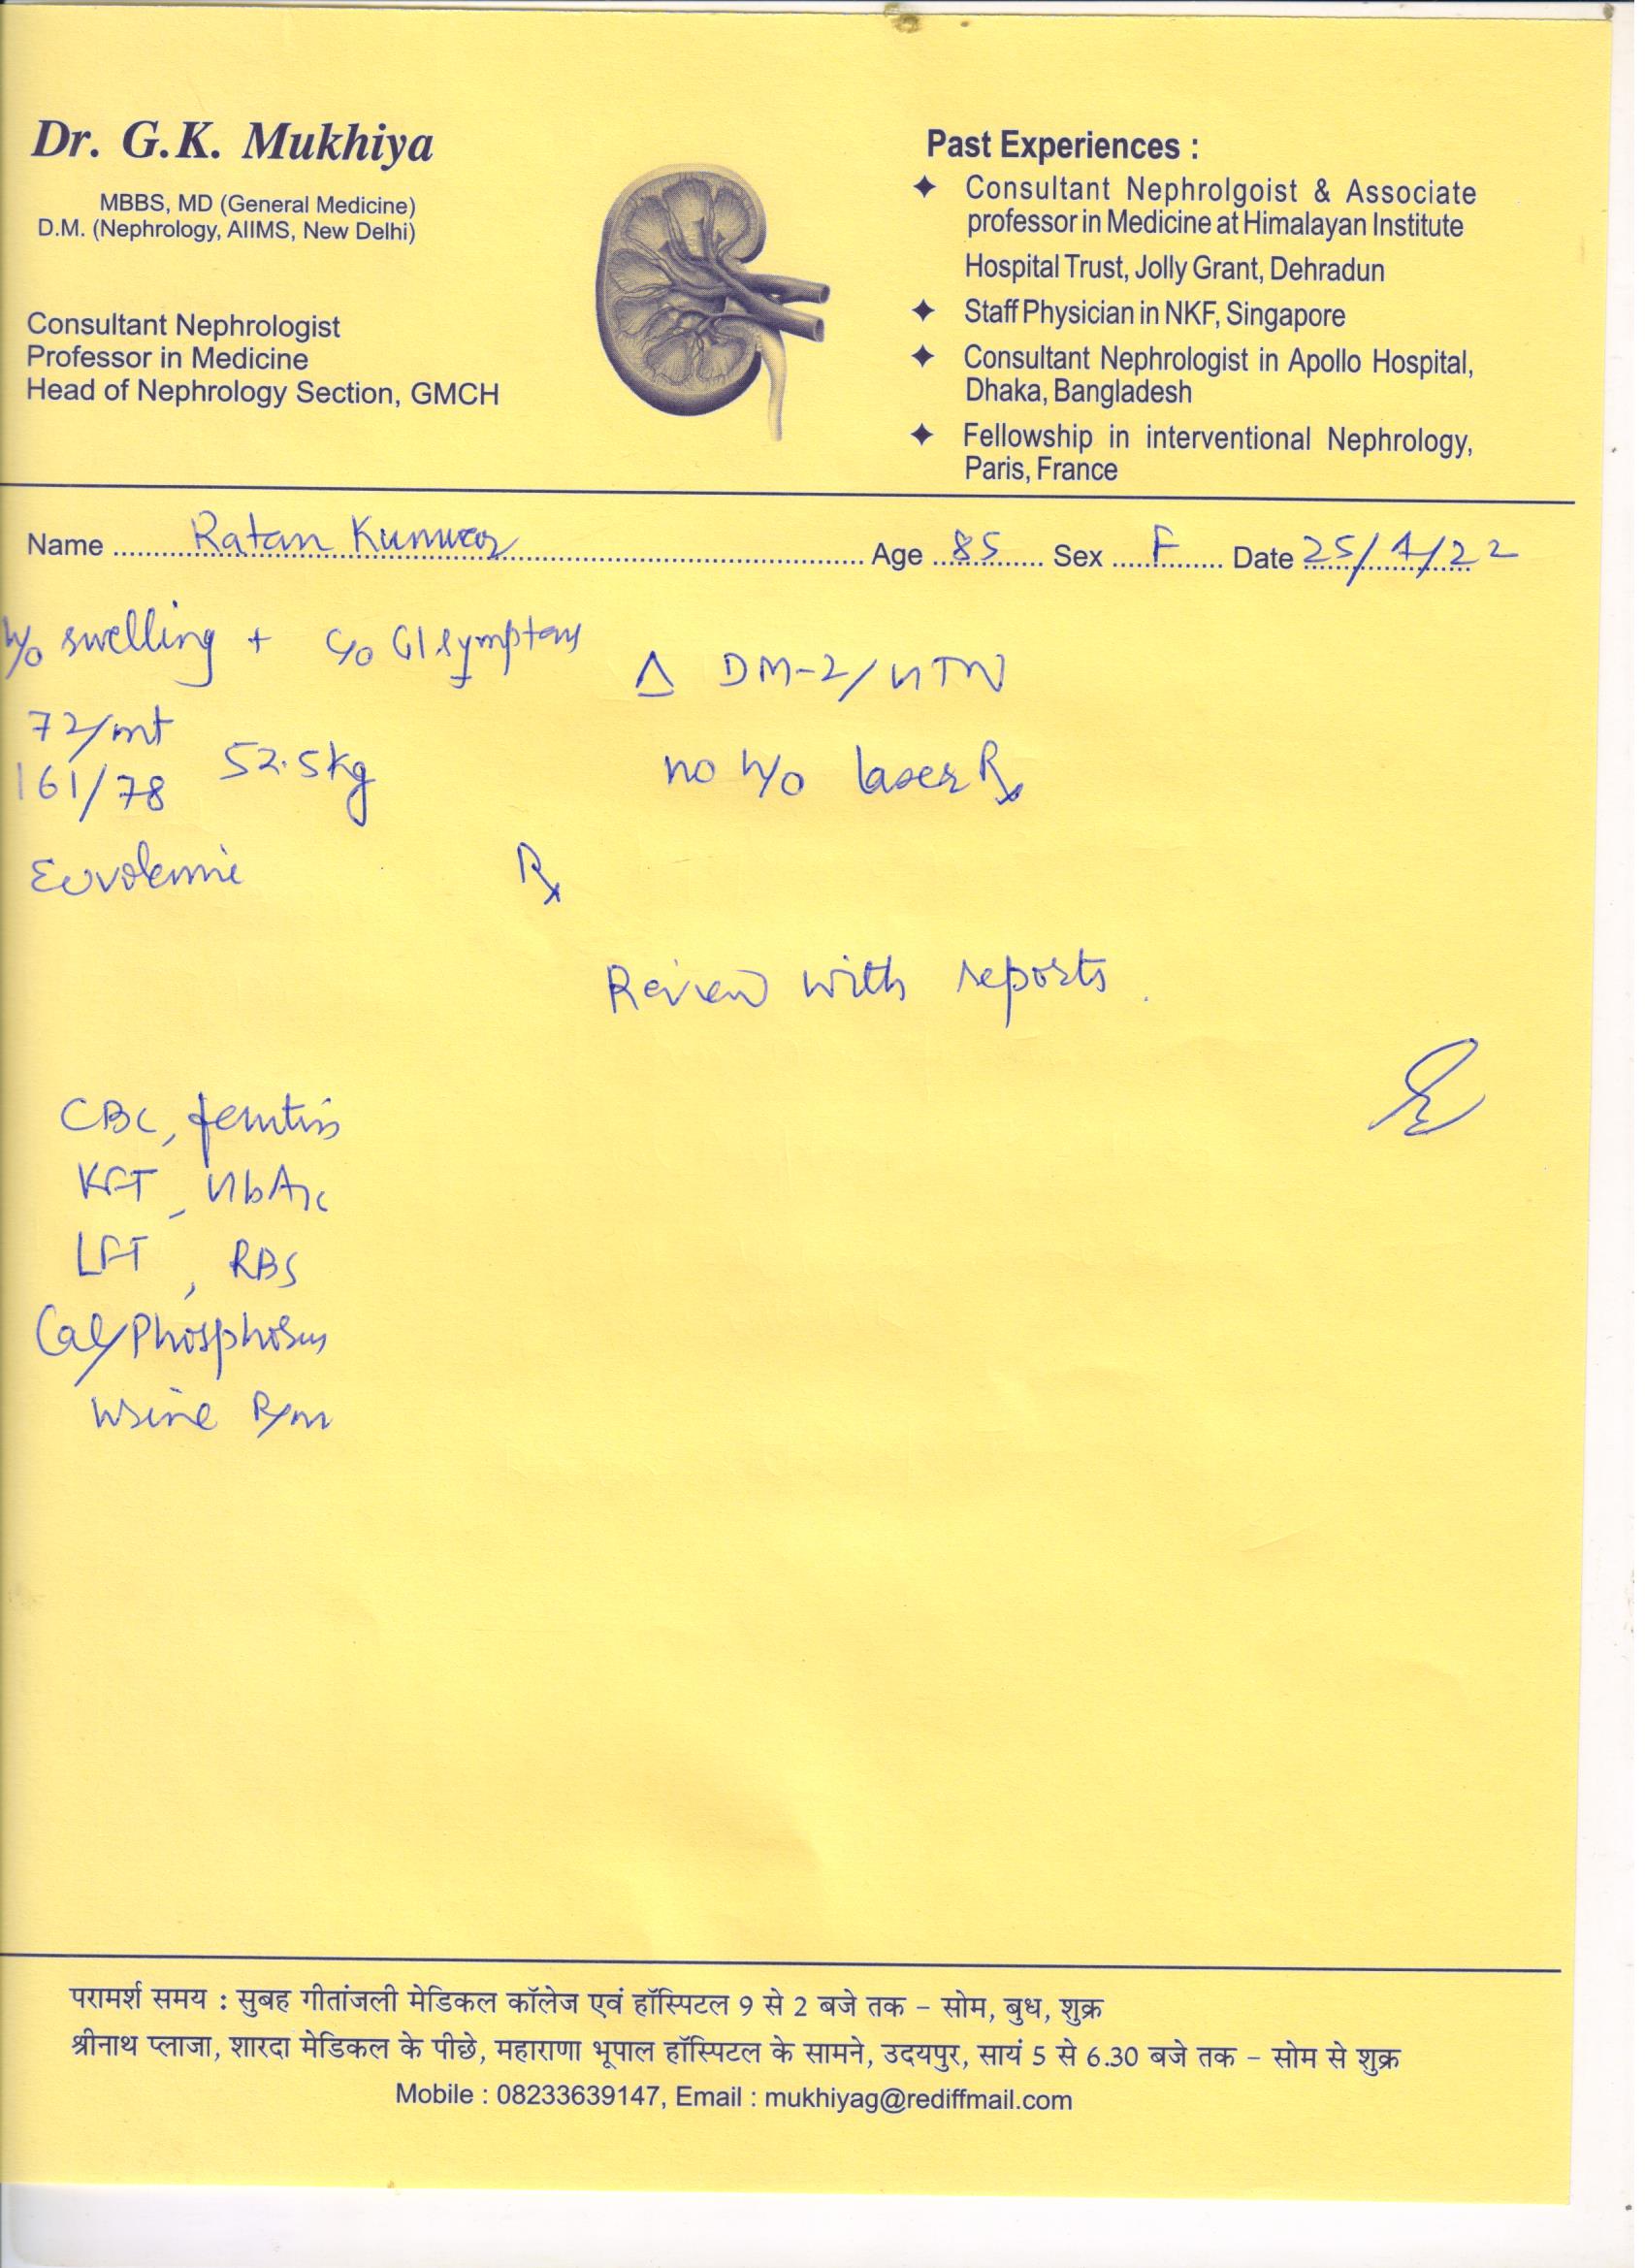 Dr. G.K. Mukhiya
MBBS, MD (General Medicine)
D.M. (Nephrology, AIIMS, New Delhi)
Consultant Nephrologist
Professor in Medicine
Head of Nephrology Section, GMCH
Past Experiences :
✦ Consultant Nephrolgoist & Associate
professor in Medicine at Himalayan Institute
Hospital Trust, Jolly Grant, Dehradun
✦ Staff Physician in NKF, Singapore
✦ Consultant Nephrologist in Apollo Hospital,
Dhaka, Bangladesh
✦ Fellowship in interventional Nephrology,
Paris, France
Name Ratan Kunwar Age 85 Sex F Date 25/1/22
h/o swelling + c/o GI symptoms
Δ DM-2/HTN
72/mt
161/78 52.5kg
no h/o laser Rx
Euvolemic
Rx
Review with reports.
CBC, ferritin
KFT, HbA1c
LFT, RBS
Cal/Phosphorus
Urine R/m
परामर्श समय : सुबह गीतांजली मेडिकल कॉलेज एवं हॉस्पिटल 9 से 2 बजे तक – सोम, बुध, शुक्र
श्रीनाथ प्लाजा, शारदा मेडिकल के पीछे, महाराणा भूपाल हॉस्पिटल के सामने, उदयपुर, सायं 5 से 6.30 बजे तक – सोम से शुक्र
Mobile : 08233639147, Email : mukhiyag@rediffmail.com